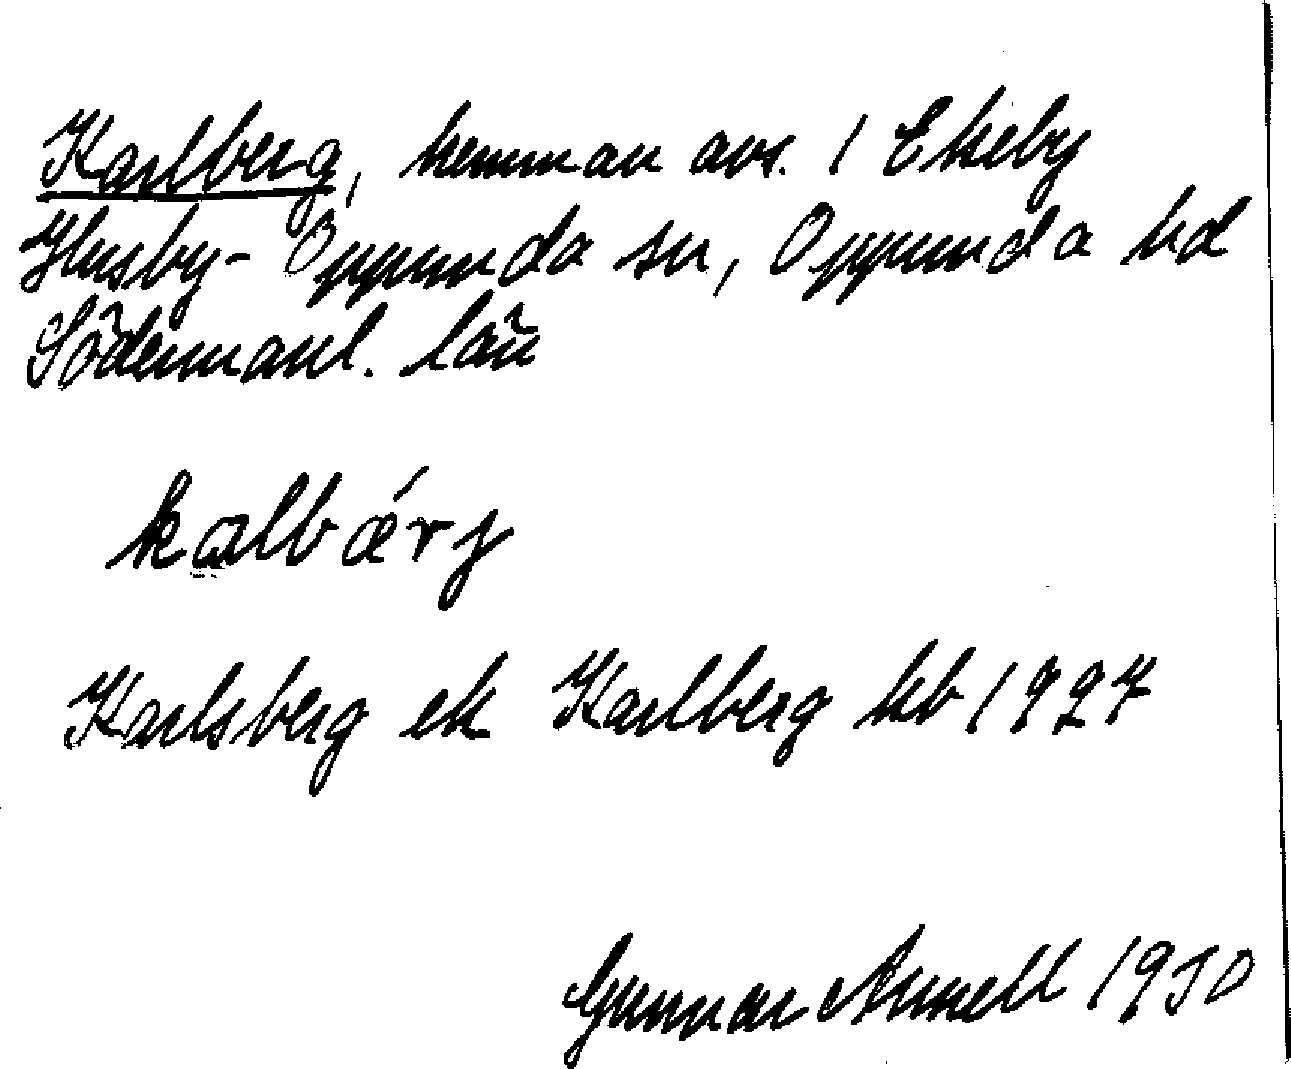 Karlberg, hemman avs. 1 Ekeby
Husby-Oppunda sn, Oppunda hd
Södermanl. län
kalbǽrj
Karlsberg ek Karlberg kb 1927
Gunnar Annell 1950